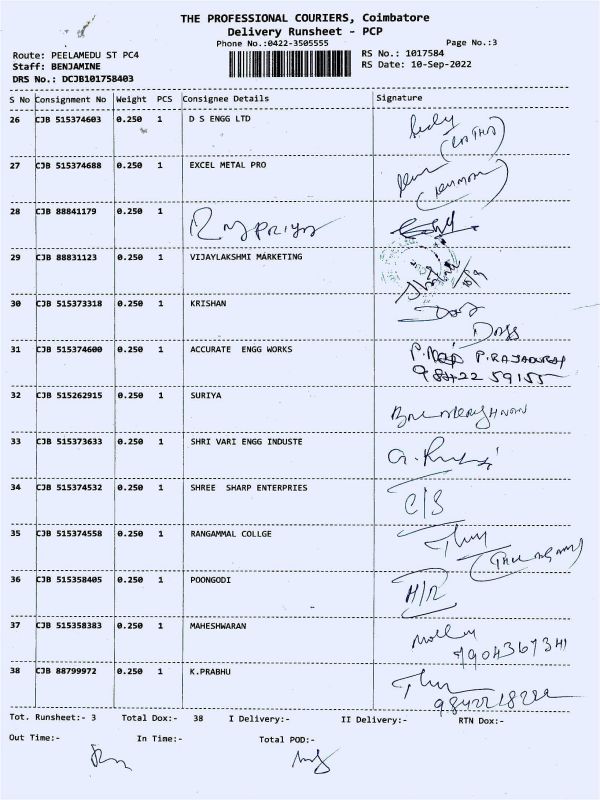 THE PROFESSIONAL COURIERS, Coimbatore
Delivery Runsheet - PCP
Phone No.:0422-3505555 Page No.:3
Route: PEELAMEDU ST PC4 RS No.: 1017584
Staff: BENJAMINE RS Date: 10-Sep-2022
DRS No.: DCJB101758403
S No Consignment No Weight PCS Consignee Details Signature
26 CJB 515374603 0.250 1 D S ENGG LTD
27 CJB 515374688 0.250 1 EXCEL METAL PRO
28 CJB 88841179 0.250 1
29 CJB 88831123 0.250 1 VIJAYLAKSHMI MARKETING
30 CJB 515373318 0.250 1 KRISHAN
Doss
31 CJB 515374600 0.250 1 ACCURATE ENGG WORKS P.RAJADURAI
32 CJB 515262915 0.250 1 SURIYA
33 CJB 515373633 0.250 1 SHRI VARI ENGG INDUSTE
34 CJB 515374532 0.250 1 SHREE SHARP ENTERPRIES C/S
35 CJB 515374558 0.250 1 RANGAMMAL COLLGE
36 CJB 515358405 0.250 1 POONGODI H/R
37 CJB 515358383 0.250 1 MAHESHWARAN
7904367341
38 CJB 88799972 0.250 1 K.PRABHU
Tot. Runsheet:- 3 Total Dox:- 38 I Delivery:- II Delivery:- RTN Dox:-
Out Time:- In Time:- Total POD:-